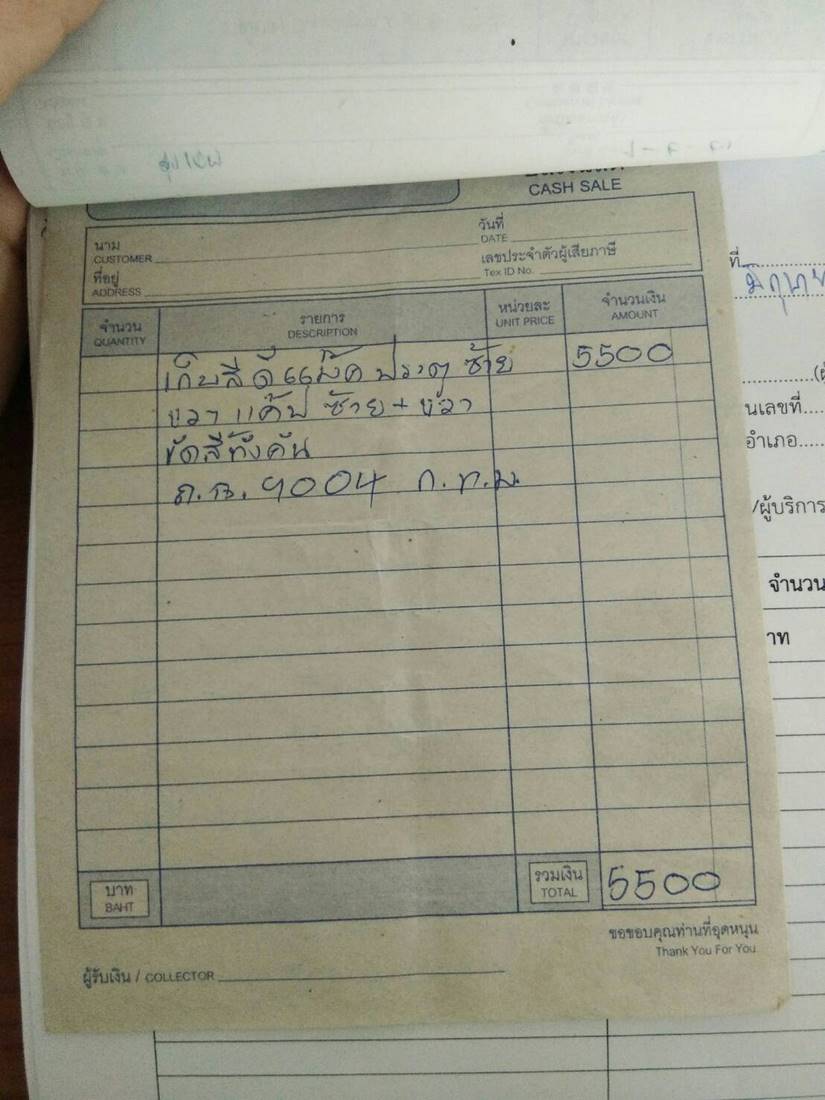 CASH SALE
นาม
CUSTOMER
วันที่
DATE
ที่อยู่
ADDRESS
เลขประจำตัวผู้เสียภาษี
Tex ID No.
จำนวน
QUANTITY
รายการ
DESCRIPTION
หน่วยละ
UNIT PRICE
จำนวนเงิน
AMOUNT
เก็บสี ดีแม๊ค ประตู ซ้าย 5500
ขวา แค๊บ ซ้าย + ขวา
ขัดสีทั้งคัน
9004 ก.ท.ม.
บาท
BAHT
รวมเงิน
TOTAL
5500
ขอขอบคุณท่านที่อุดหนุน
Thank You For You
ผู้รับเงิน / COLLECTOR
ที่
(ผู้
นเลขที่
อำเภอ
/ผู้บริการ
จำนวน
าท